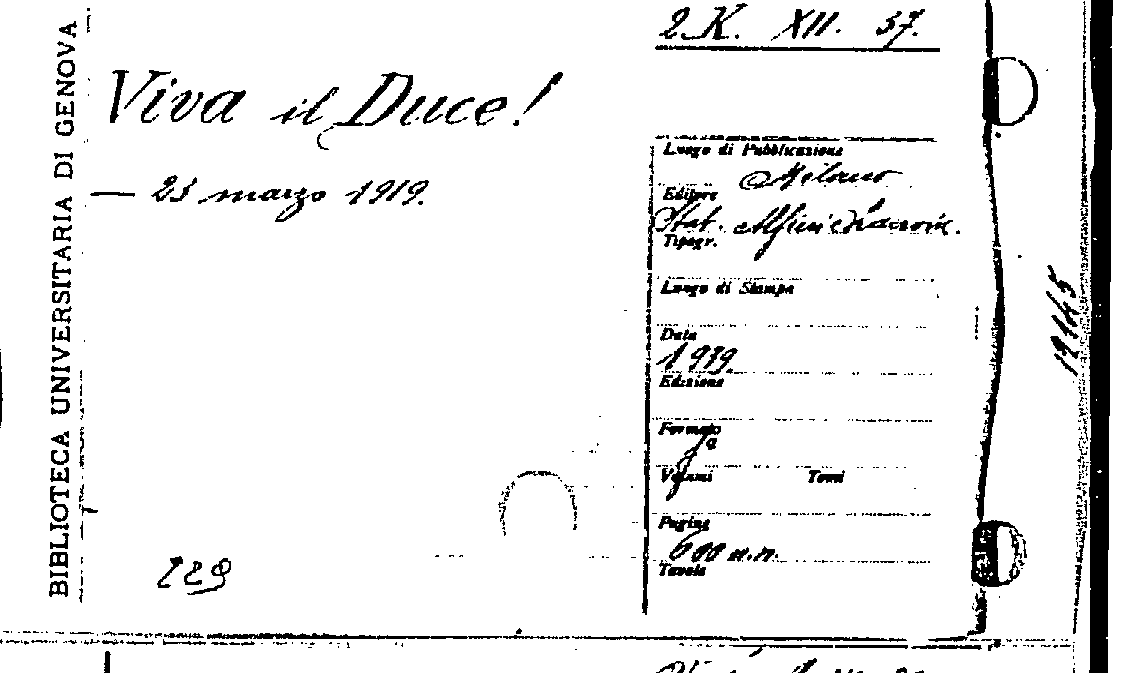 BIBLIOTECA UNIVERSITARIA DI GENOVA
2.K. XII. 37.
Viva il Duce!
— 23 marzo 1919.
Luogo di Pubblicazione
Milano
Editore
Stab. Alfieri
Tipogr.
Luogo di Stampa
Data
1939.
Edizione
Formato
fº
Volumi Tomi
Pagine
600 n.n.
Tavole